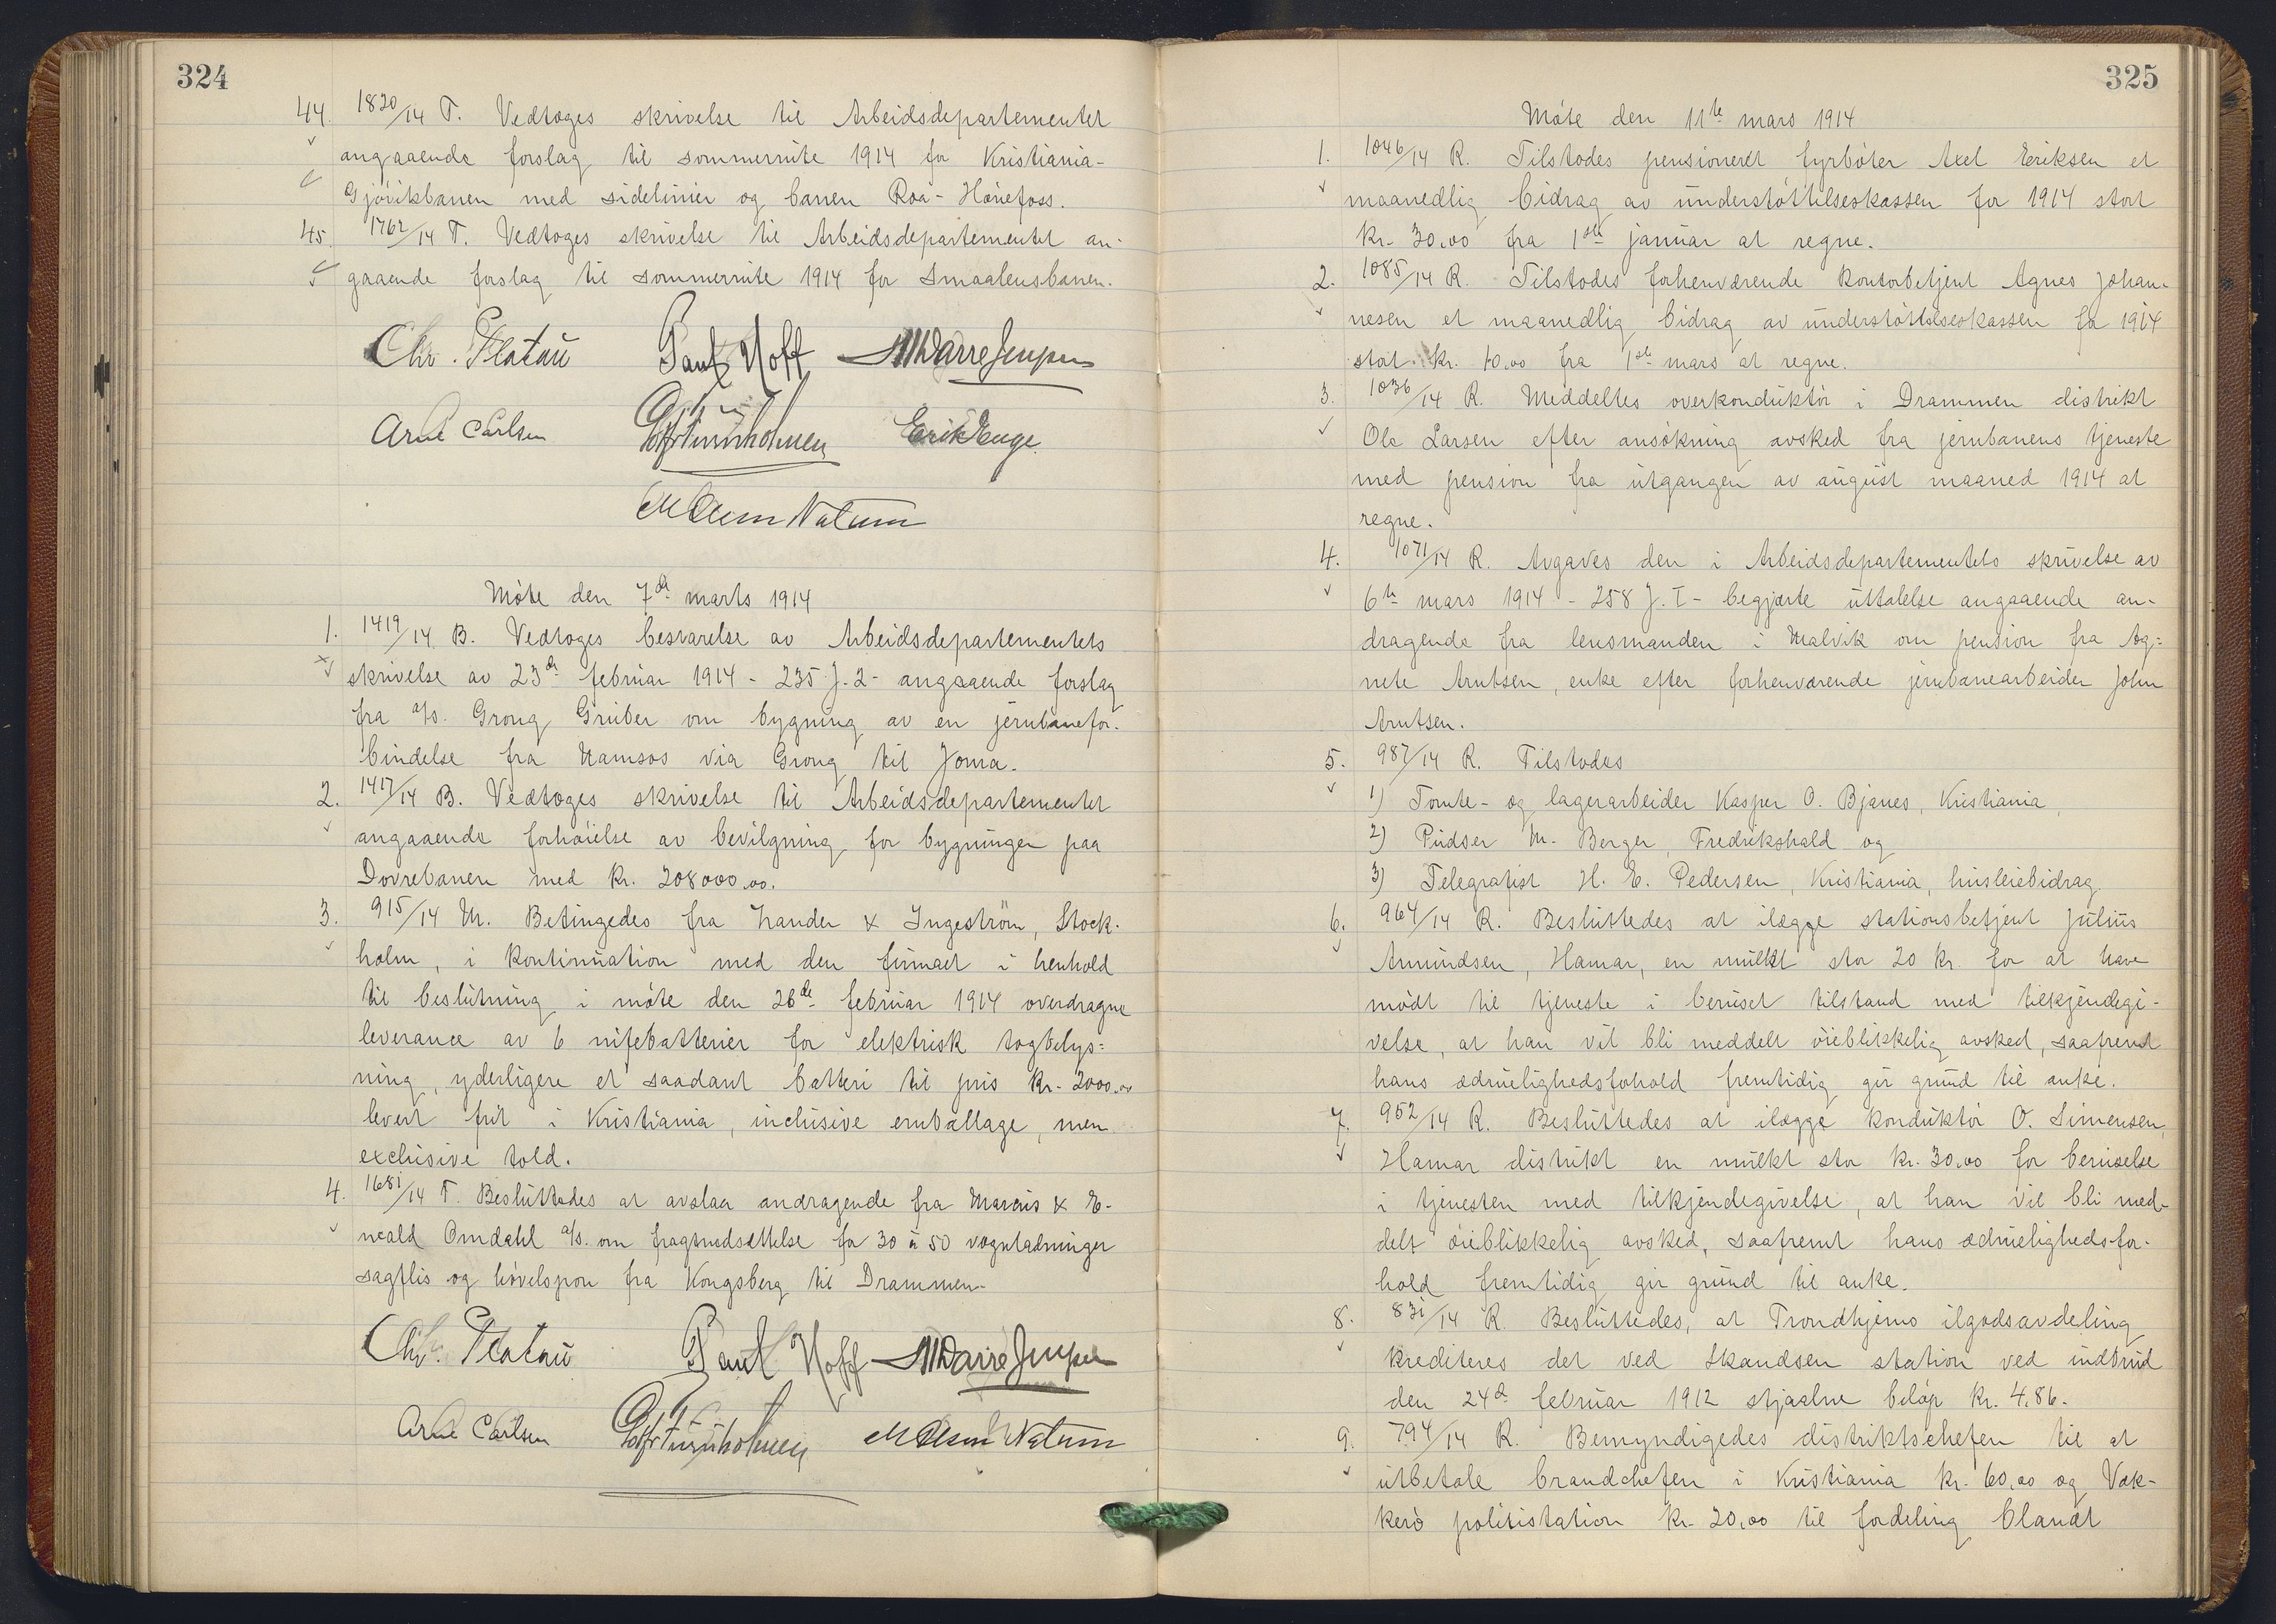 324
44. 1820/14 T. Vedtoges skrivelse til Arbeidsdepartementet
angaaende forslag til sommerruite 1914 for Kristiania-
Gjøvikbanen med sidelinier og banen Roa-Hønefoss.
45. 1762/14 T. Vedtoges skrivelse til Arbeidsdepartementet an-
gaaende forslag til sommerruite 1914 for Smaalensbanen.
Chr. Platou Paul Hoff M Darre Jenssen
Arne Carlsen Erik Enge
Møte den 7de marts 1914
1. 1419/14 B. Vedtoges besvarelse av Arbeidsdepartementets
skrivelse av 23de februar 1914 - 235 J. 2 - angaaende forslag
fra a/s. Grong Gruber om bygning av en jernbanefor-
bindelse fra Namsos via Grong til Joma.
2. 1417/14 B. Vedtoges skrivelse til Arbeidsdepartementet
angaaende forhøielse av bevilgning for bygningen paa
Dovrebanen med kr. 208000.00.
3. 915/14 M. Betingedes fra Zander & Ingeström, Stock-
holm, i kontinuation med den firmaet i henhold
til beslutning i møte den 26de februar 1914 overdragne
leverance av 6 nifebatterier for elektrisk togbelys=
ning, yderligere et saadant batteri til pris kr. 2000.00
levert frit i Kristiania, inclusive emballage, men
exclusive told.
4. 1681/14 T. Besluttedes at avslaa andragende fra Marcus & E-
newald Omdahl a/s. om fragtnedsættelse for 30 à 50 vognladninger
sagflis og høvelspon fra Kongsberg til Drammen.
Chr. Platou Paul Hoff M Darre Jenssen
Arne Carlsen
325
Møte den 11te mars 1914
1. 1046/14 R. Tilstodes pensioneret fyrbøter Axel Eriksen et
maanedlig bidrag av understøttelseskassen for 1914 stort
kr. 30.00 fra 1ste januar at regne.
2. 1085/14 R. Tilstodes forhenværende kontorbetjent Agnes Johan-
nesen et maanedlig bidrag av understøttelseskassen for 1914
stort kr. 10.00 fra 1ste mars at regne.
3. 1036/14 R. Meddeltes overkonduktør i Drammen distrikt
Ole Larsen efter ansøkning avsked fra jernbanens tjeneste
med pension fra utgangen av august maaned 1914 at
regne.
4. 1071/14 R. Avgaves den i Arbeidsdepartementets skrivelse av
6te mars 1914 - 258 J. I - begjærte uttalelse angaaende an-
dragende fra lensmanden i Malvik om pension fra Ag=
nete Arntsen, enke efter forhenværende jernbanearbeider John
Arntsen.
5. 987/14 R. Tilstodes
1) Tomte- og lagerarbeider Kasper O. Bjanes, Kristiania,
2) Pudser M. Berger, Fredrikshald og
3) Telegrafist H. E. Pedersen, Kristiania, husleiebidrag.
6. 964/14 R. Besluttedes at ilægge stationsbetjent Julius
Amundsen, Hamar, en mulkt stor 20 kr. for at have
mødt til tjeneste i beruset tilstand med tilkjendegi-
velse, at han vil bli meddelt øieblikkelig avsked, saafremt
hans ædruelighedsfohold fremtidig gir grund til anke.
7. 952/14 R. Besluttedes at ilægge konduktør O. Simensen,
Hamar distrikt en mulkt stor kr. 30.00 for beruselse
i tjenesten med tilkjendegivelse, at han vil bli med-
delt øieblikkelig avsked, saafremt hans ædruelighedsfor-
hold fremtidig gir grund til anke.
8. 831/14 R. Besluttedes, at Trondhjems ilgodsavdeling
krediteres det ved Skandsen station ved indbrud
den 24de februar 1912 stjaalne beløp kr. 4.86.
9. 794/14 R. Bemyndigedes distriktschefen til at
utbetale brandchefen i Kristiania kr. 60.00 og Vak-
kerø politistation kr. 20.00 til fordeling blandt